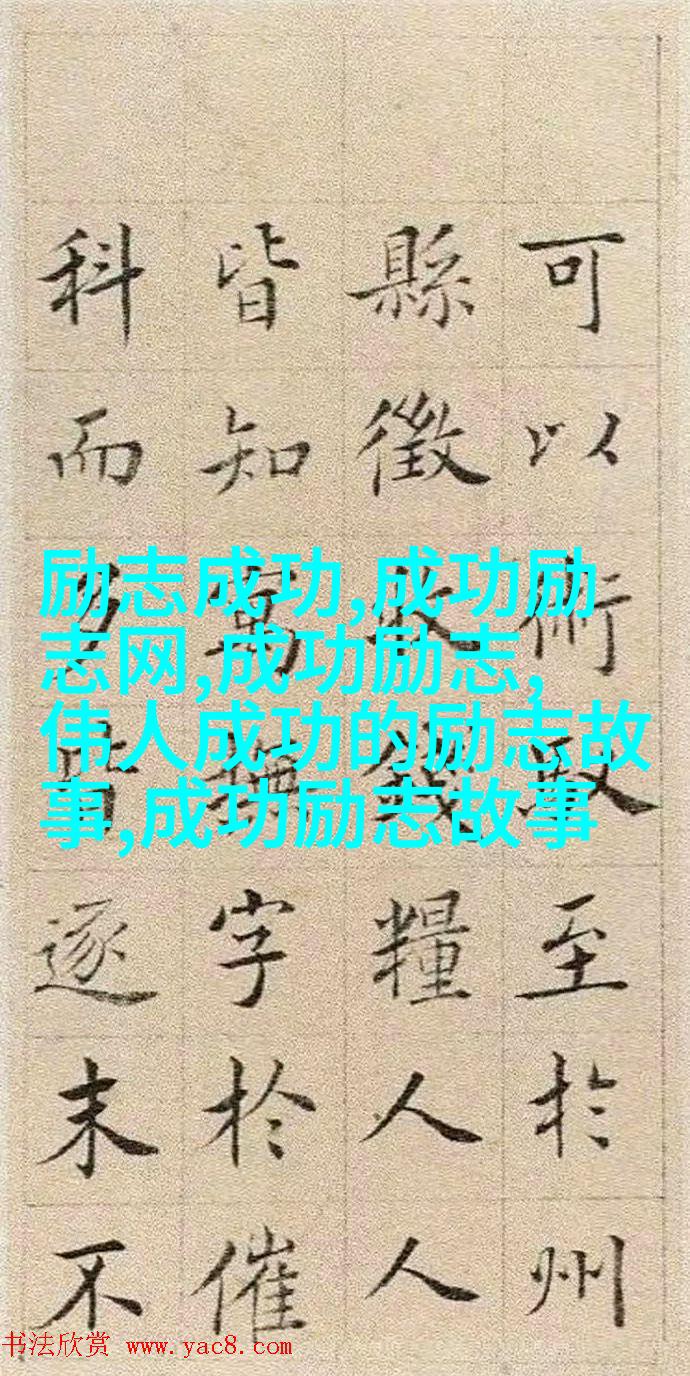 可以術至於州
縣徵收錢糧人人
皆知寓撫字於催
科而皆逐末不
励志成功,成功励
志网,成功励志,
伟人成功的励志故
事,成功励志故事
书法欣赏 www.yac8.com